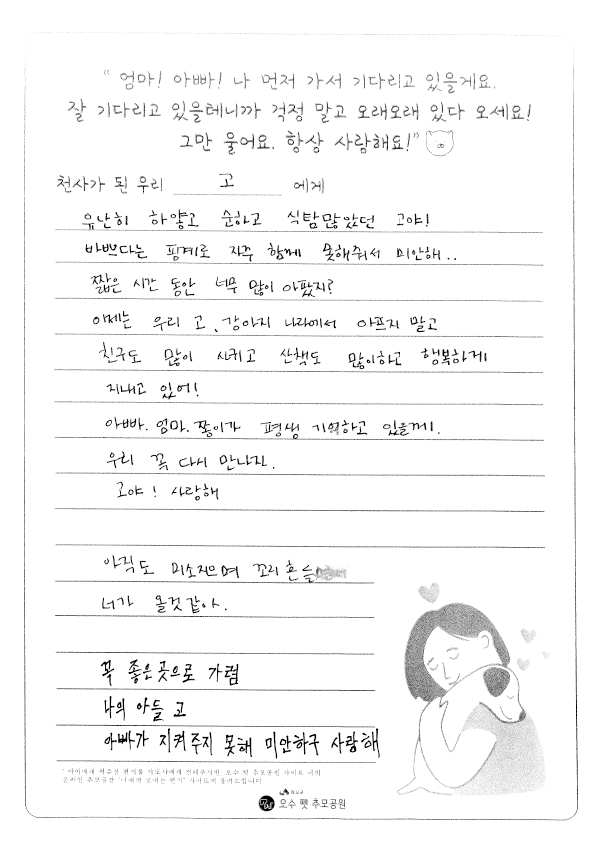 “ 엄마! 아빠! 나 먼저 가서 기다리고 있을게요.
잘 기다리고 있을테니까 걱정 말고 오래오래 있다 오세요!
그만 울어요. 항상 사랑해요!”
천사가 된 우리 고 에게
유난히 하얗고 순하고 식탐많았던 고야!
바쁘다는 핑계로 자주 함께 못해줘서 미안해..
짧은 시간 동안 너무 많이 아팠지?
이제는 우리 고, 강아지 나라에서 아프지 말고
친구도 많이 사귀고 산책도 많이하고 행복하게
지내고 있어!
아빠. 엄마. 쫑이가 평생 기억하고 있을께.
우리 꼭 다시 만나진.
고야! 사랑해
아직도 미소지으며 꼬리흔들
너가 올것같아.
꼭 좋은곳으로 가렴
나의 아들 고
아빠가 지켜주지 못해 미안하구 사랑해
오수 펫 추모공원